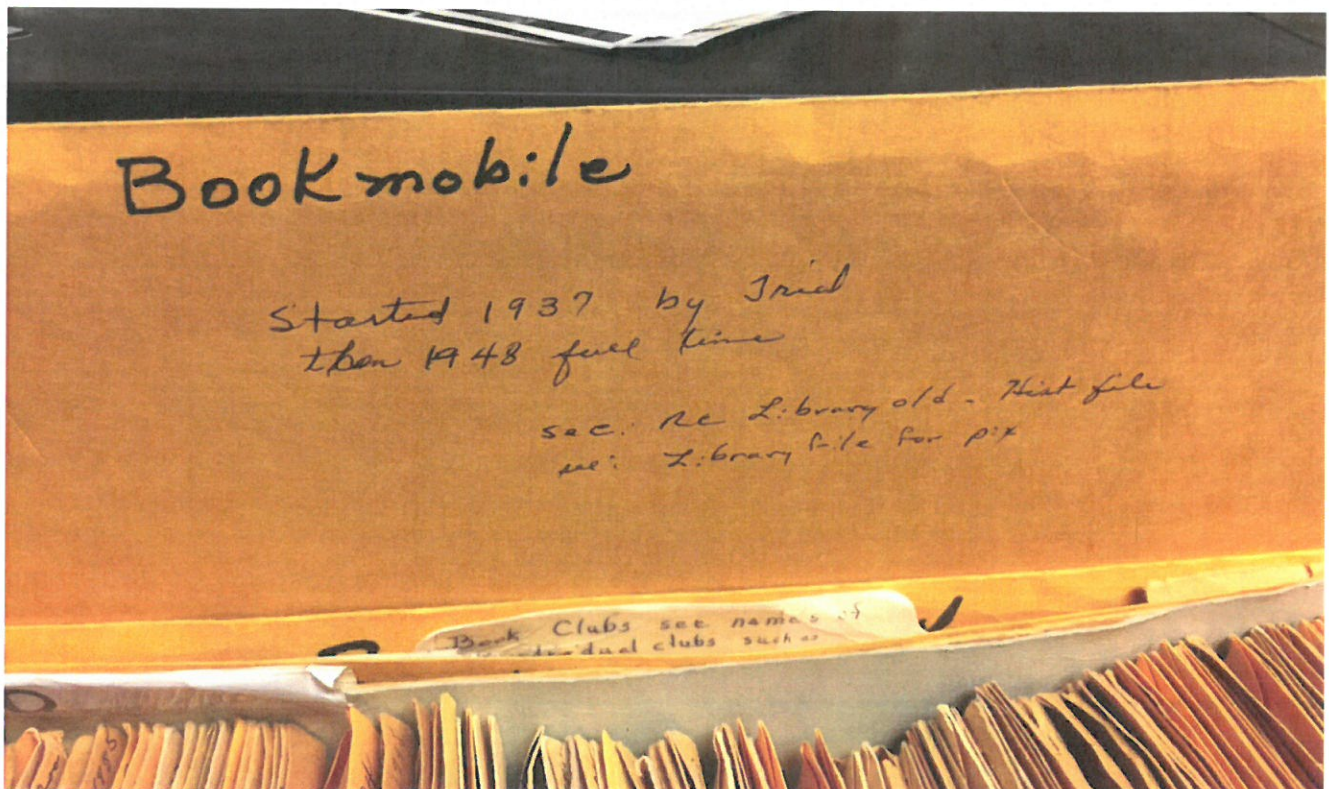 Bookmobile
Started 1937 by Trial
then 1948 full time
see: Re Library old - Hist file
see: Library file for pix
Book Clubs see names of
individual clubs such as